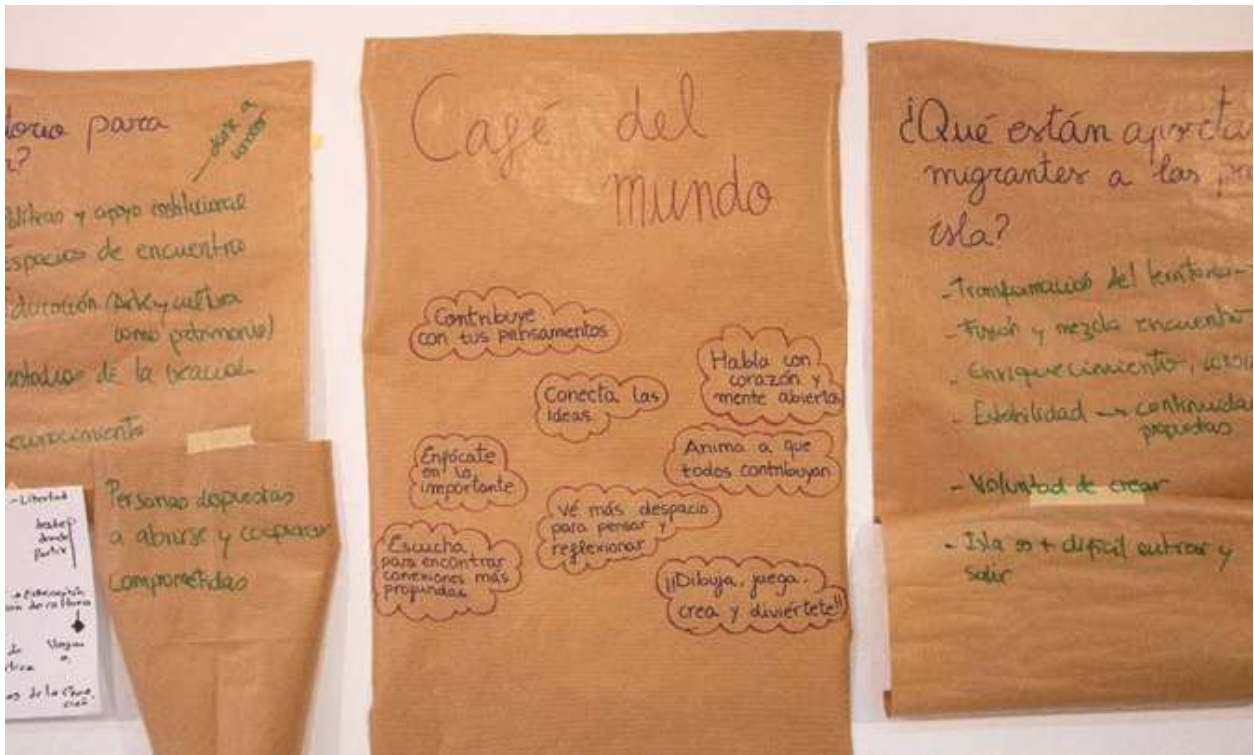 para
?
donde a
y apoyo institucional
espacios de encuentro
Educación (Arte y cultura
como patrimonio)
de la
Personas dispuestas
a abrirse y cooperar
comprometidas
- Libertad
donde
partir
de
de la
Café del
mundo
Contribuye
con tus pensamentos
Conecta las
ideas
Habla con
corazón y
mente abierta
Enfócate
en lo
importante
Anima a que
todos contribuyan
Vé más despacio
para pensar y
reflexionar
Escucha
para encontrar
conexiones más
profundas
¡¡Dibuja, juega,
crea y diviértete!!
¿Qué están
migrantes a las
isla?
- Transformación del territorio
- Fusión y mezcla encuentro
- Enriquecimiento,
- Estabilidad → 
propuestas
- Voluntad de crear
- Isla es + difícil entrar y
salir